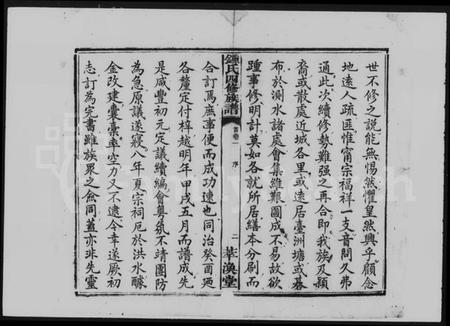 世不修之說能無惕然懼皇然興乎顧念
地遠人疏匪惟甯宗福祥一支音問久弗
通此次續修勢難强之再合即我族及穎
裔或散處近城各里或遠居臺洲塘或碁
布於測水諸處會集維艱圖成不易故欲
踵事修明計莫如各就所居繕本分刷而
合訂焉庶事便而成功速也同治癸酉迺
鍾氏四修族譜
首卷一 序
二 莘漢堂
各釐定付梓越明年甲戌五月而譜成先
是咸豐初元定議續編會粵氛不靖團防
為急原議遂寢八年夏宗祠厄於洪水醵
金改建囊橐率空力又不遑今幸遂厥初
志訂為完書雖族衆之僉同蓋亦非先靈